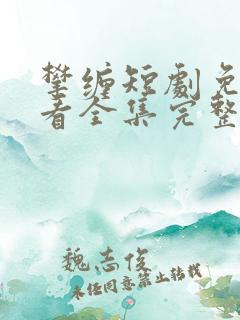 攀缠短劇免
看全集完整
魏志俊
未经同意禁止转载